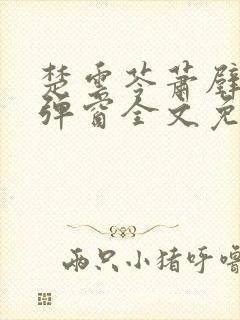 楚云苓萧壁
弹窗全文免
两只小猪呼噜